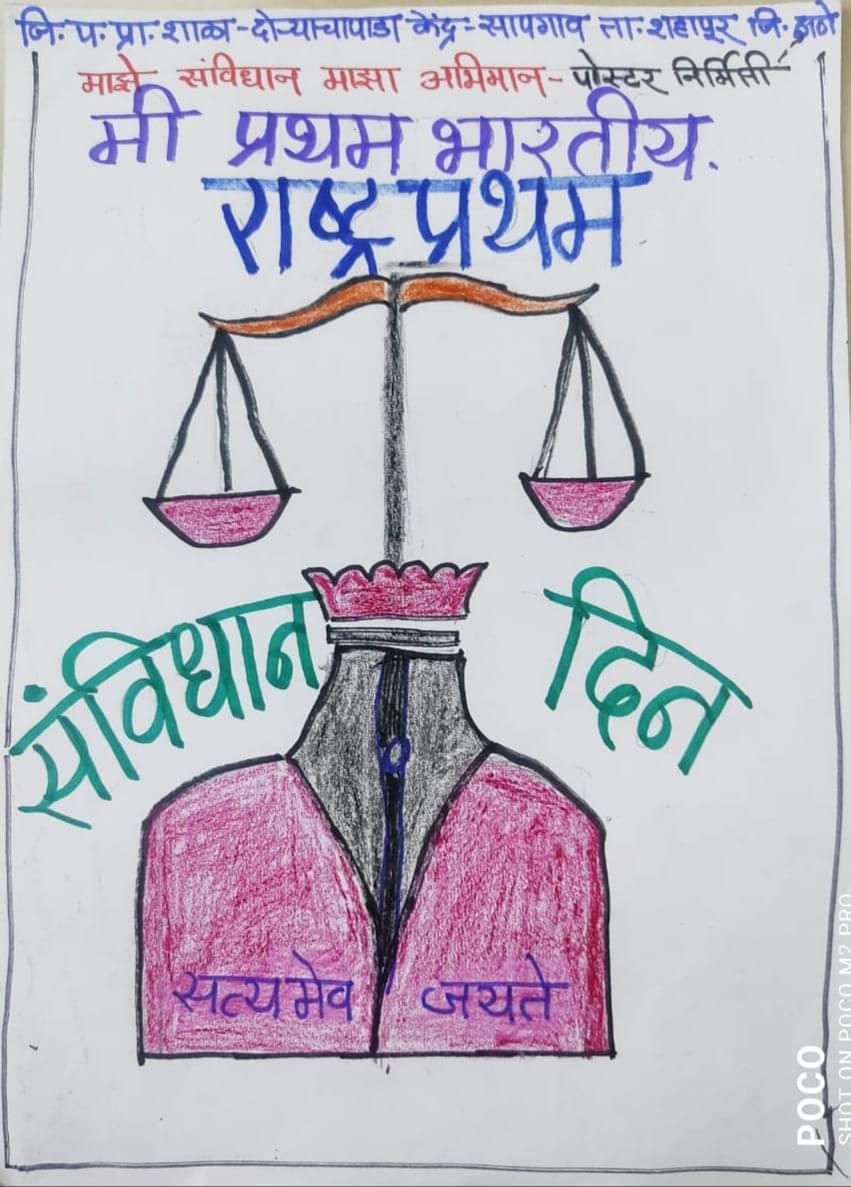 जि. प. प्रा. शाळा-दोऱ्याचापाडा केंद्र-सापगाव ता. शहापूर जि. ठाणे
माझे संविधान माझा अभिमान- पोस्टर निर्मिती
मी प्रथम भारतीय.
राष्ट्र प्रथम
संविधान दिन
सत्यमेव जयते
POCO
SHOT ON POCO M2 PRO